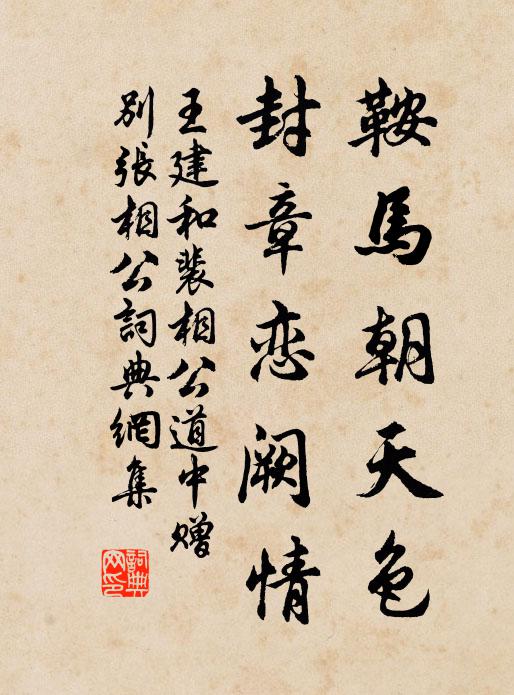 鞍馬朝天色
封章恋阙情
王建和裴相公道中赠
别張相公詞典網集
詞典網印